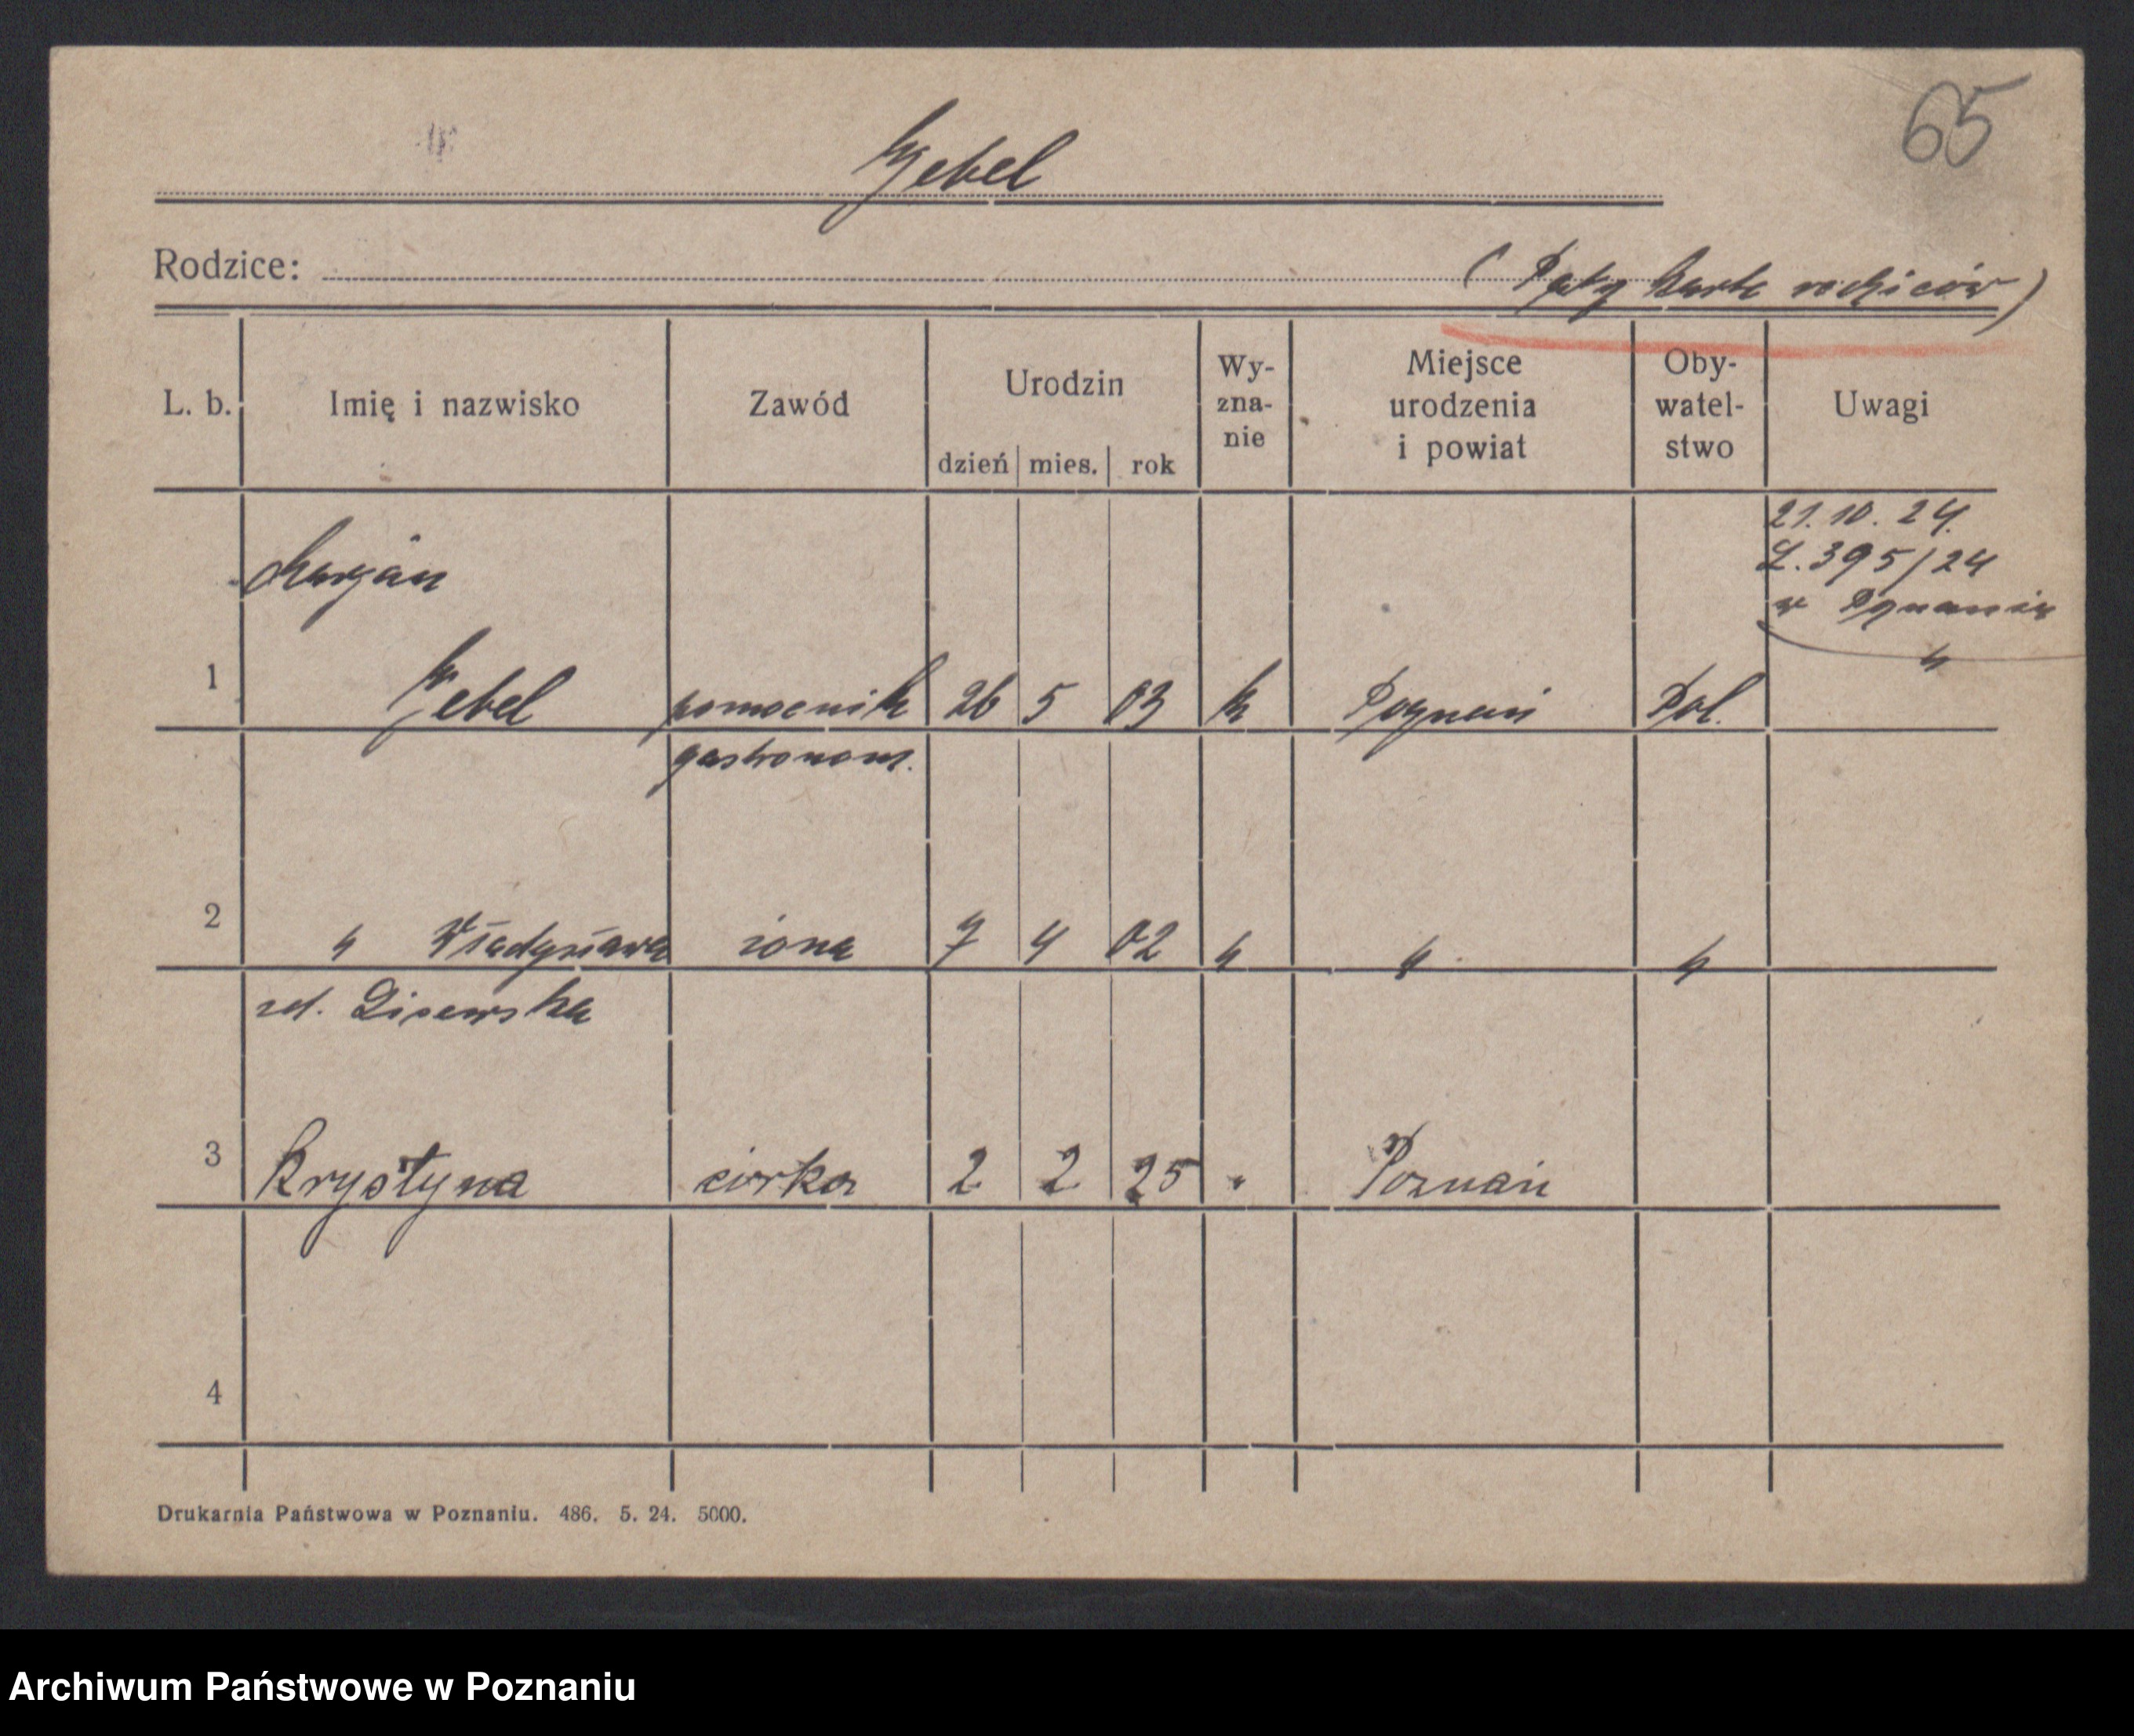 65
Gebel
Rodzice: (Patrz karta rodziców)
L. b. Imię i nazwisko Zawód Urodzin dzień mies. rok Wy-zna-nie Miejsce urodzenia i powiat Oby-watel-stwo Uwagi
21. 10. 24.
L. 395/24
w Poznaniu
Marjan
1 Gebel pomocnik 26 5 03 k Poznań Pol.
gastronom.
2 " Władysława żona 7 4 02 " " "
zd. Lisewska
3 Krystyna córka 2 2 25 " Poznań
4
Drukarnia Państwowa w Poznaniu. 486. 5. 24. 5000.
Archiwum Państwowe w Poznaniu